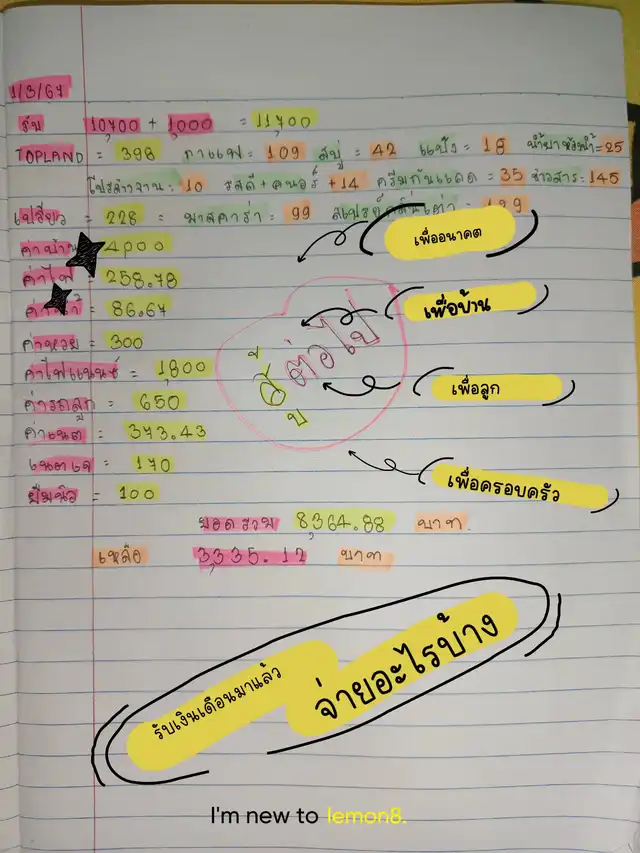 1/3/67
รับ 10,700 + 1,000 = 11,700
TOPLAND = 398 กาแฟ = 109 สบู่ = 42 แป้ง = 18 = 25
= 10 รสดี + คนอร์ + 14 ครีมกันแดด = 35 ข่าวสาร = 145
เปรียว = 228 = มาสคาร่า = 99
เพื่ออนาคต
4,000
ค่าไฟ = 258.78
86.67
เพื่อบ้าน
ค่าหวย = 300
สู้ ต่อไป
ค่าไฟแนนซ์ = 1,800
เพื่อลูก
ค่ารถลูก = 650
ค่าเนต = 373.43
170
เพื่อครอบครัว
ยืมนิว = 100
ยอดรวม 8,364.88 บาท.
เหลือ 3,335.12 บาท
รับเงินเดือนมาแล้ว
จ่ายอะไรบ้าง
I'm new to lemon8.